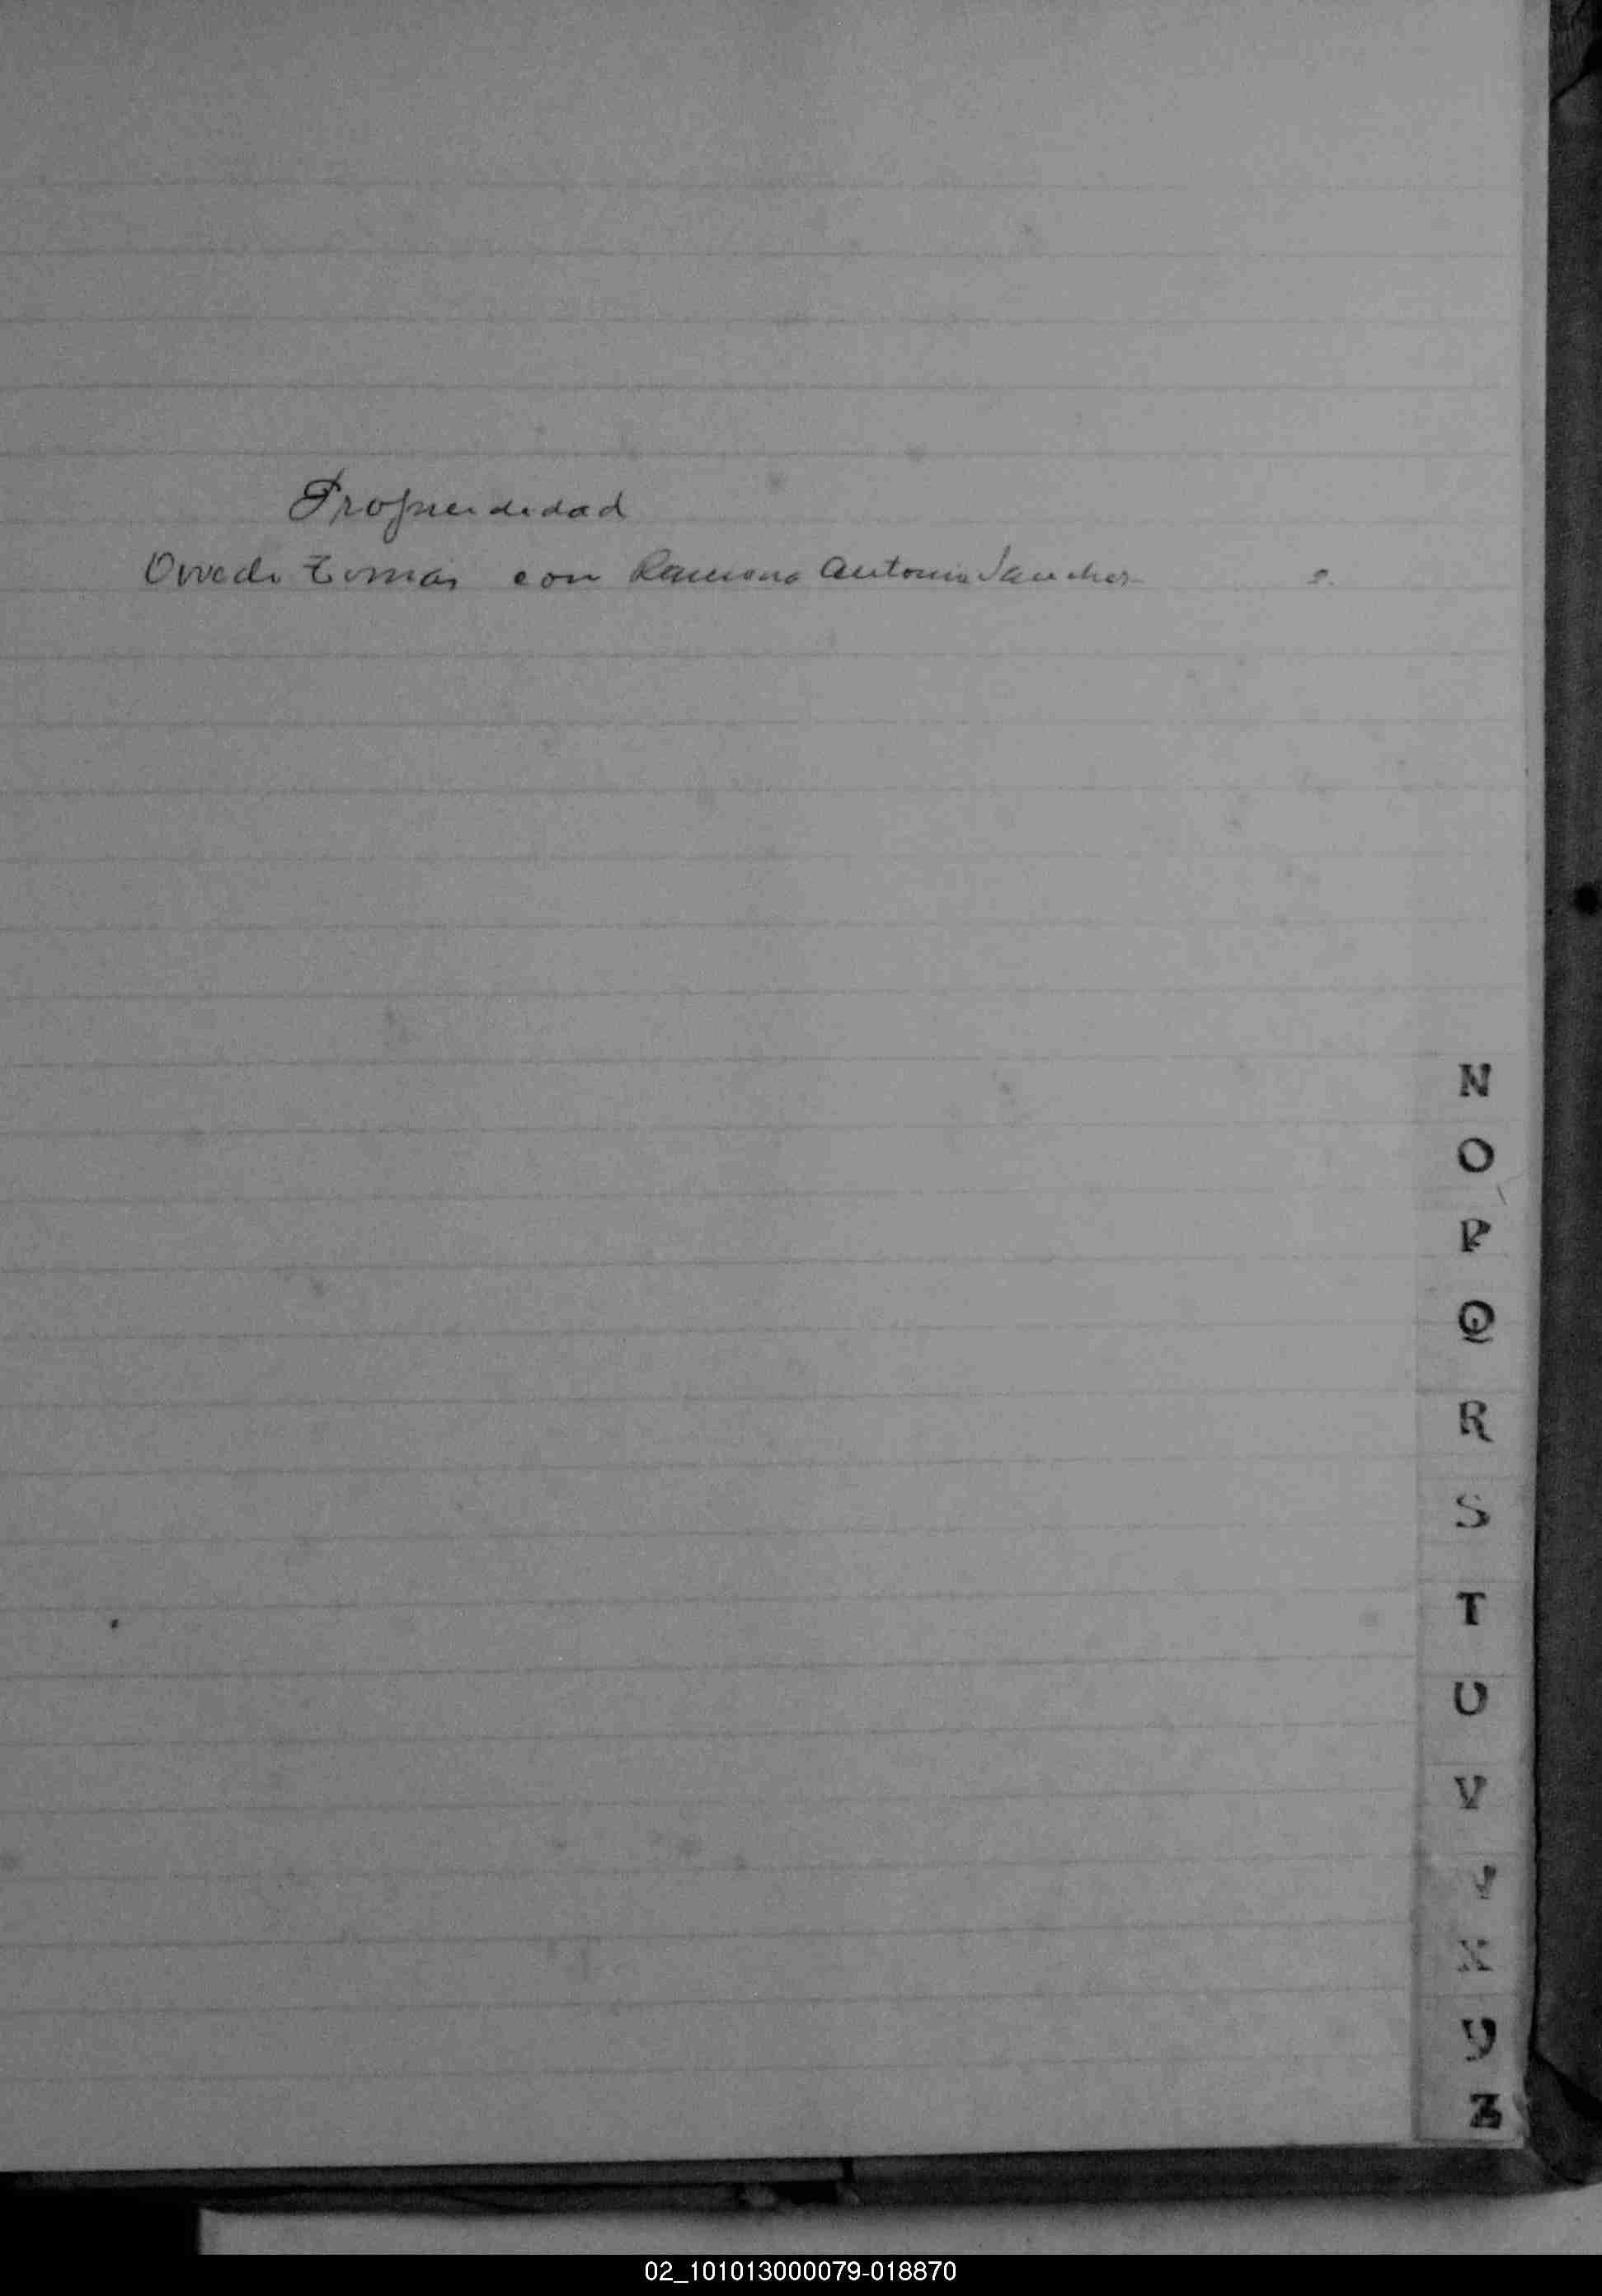 Propiendidad
Oviedo Tomás con Ramona Antonia Sanchez 2.
N
O
P
Q
R
S
T
U
V
X
Y
Z
02_101013000079-018870